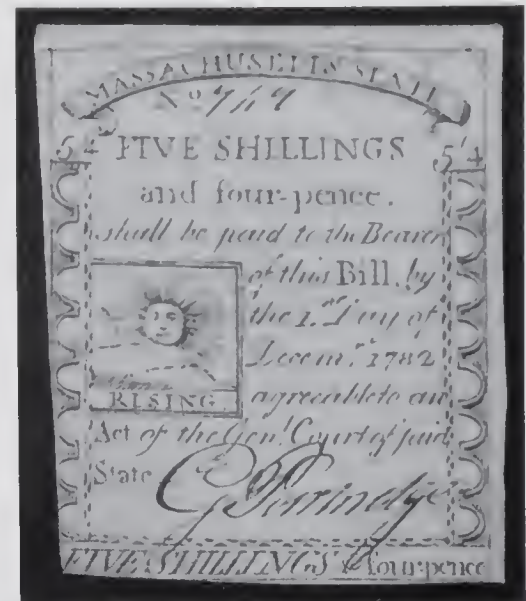 MASSACHUSETTS STATE
No
5/4 5/4
FIVE SHILLINGS
and four-pence.
shall be paid to the Bearer
of this Bill, by
the 1.st Day of
Decem.r 1782
RISING
agreeable to an
Act of the Gen.l Court of said
State
FIVE SHILLINGS & four-pence